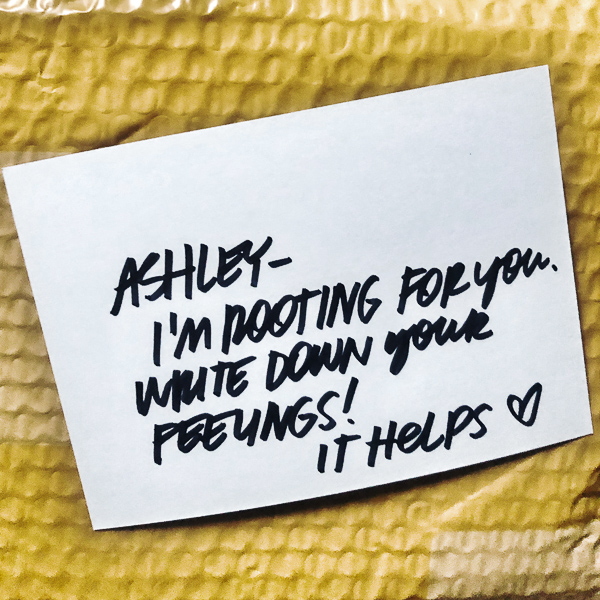 ASHLEY-
I'M ROOTING FOR YOU.
WRITE DOWN YOUR
FEELINGS!
IT HELPS ♡